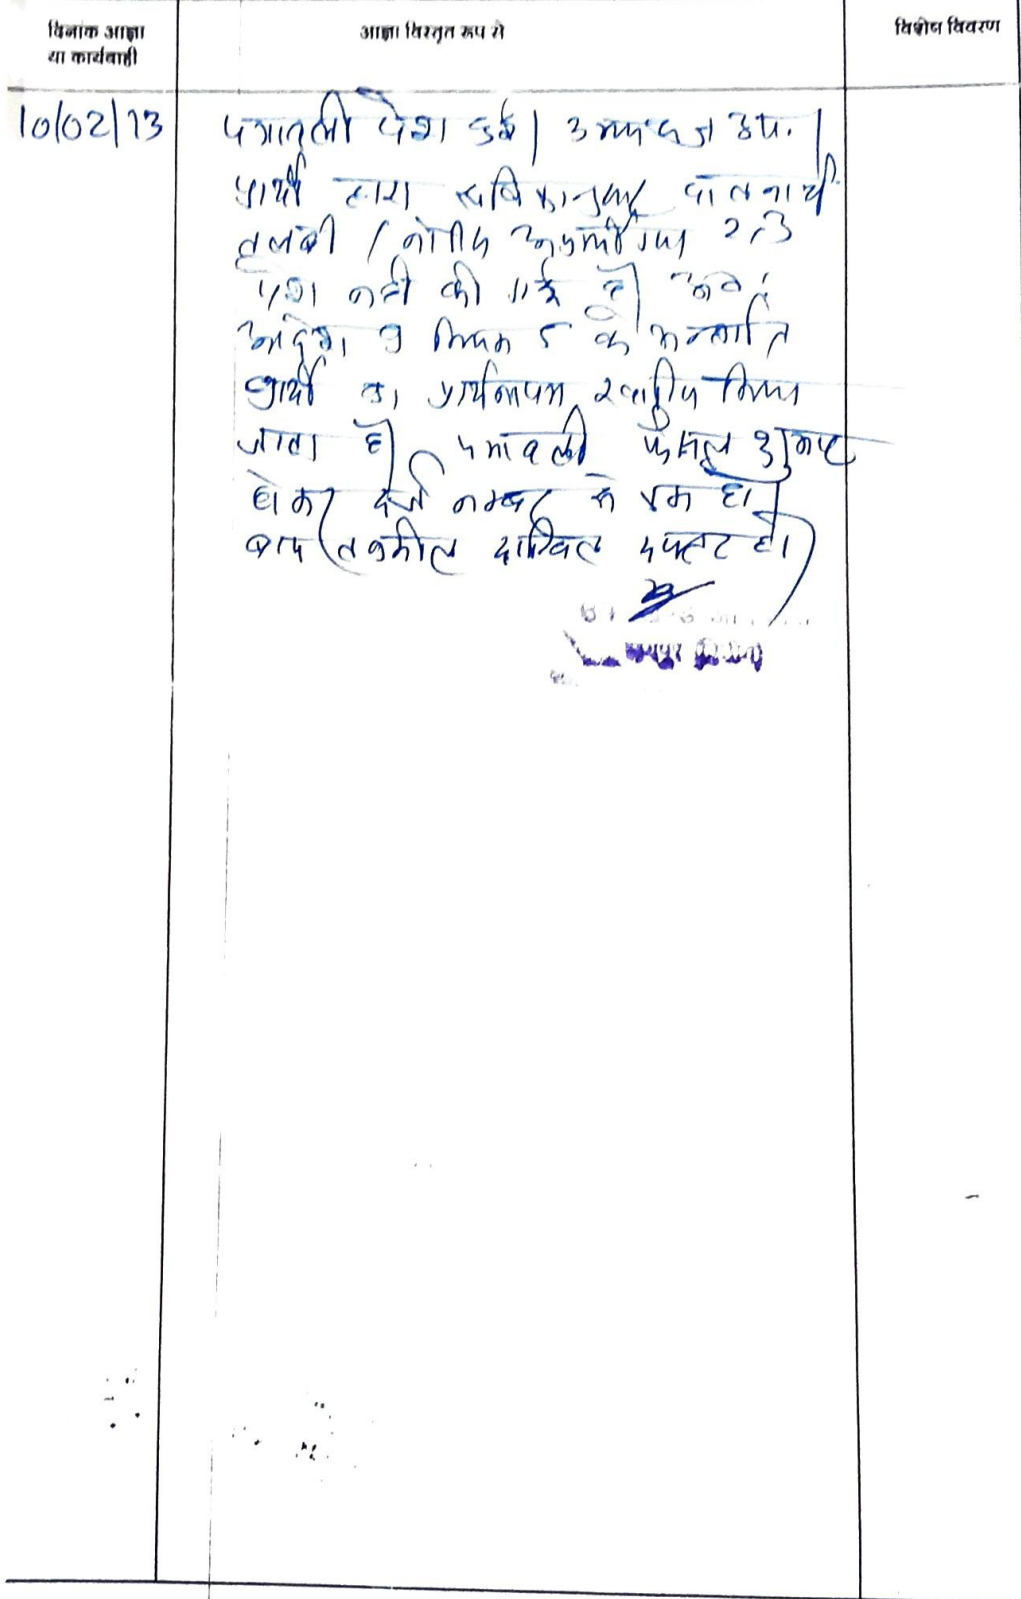 दिनांक आज्ञा या कार्यवाही
आज्ञा विस्तृत रूप से
विशेष विवरण
10/02/13
पत्रावली पेश हुई। उभयपक्ष उप.।
प्रार्थी द्वारा
तलबी / नोटिस अप्रार्थीगण 2,3
पेश नहीं की गई है। अतः
आदेश 9 नियम 5 के अन्तर्गत
प्रार्थी का प्रार्थनापत्र खारिज किया
जाता है। पत्रावली फैसल शुमार
होकर दर्ज नम्बर से कम हो।
बाद तकमील दाखिल दफ्तर हो।